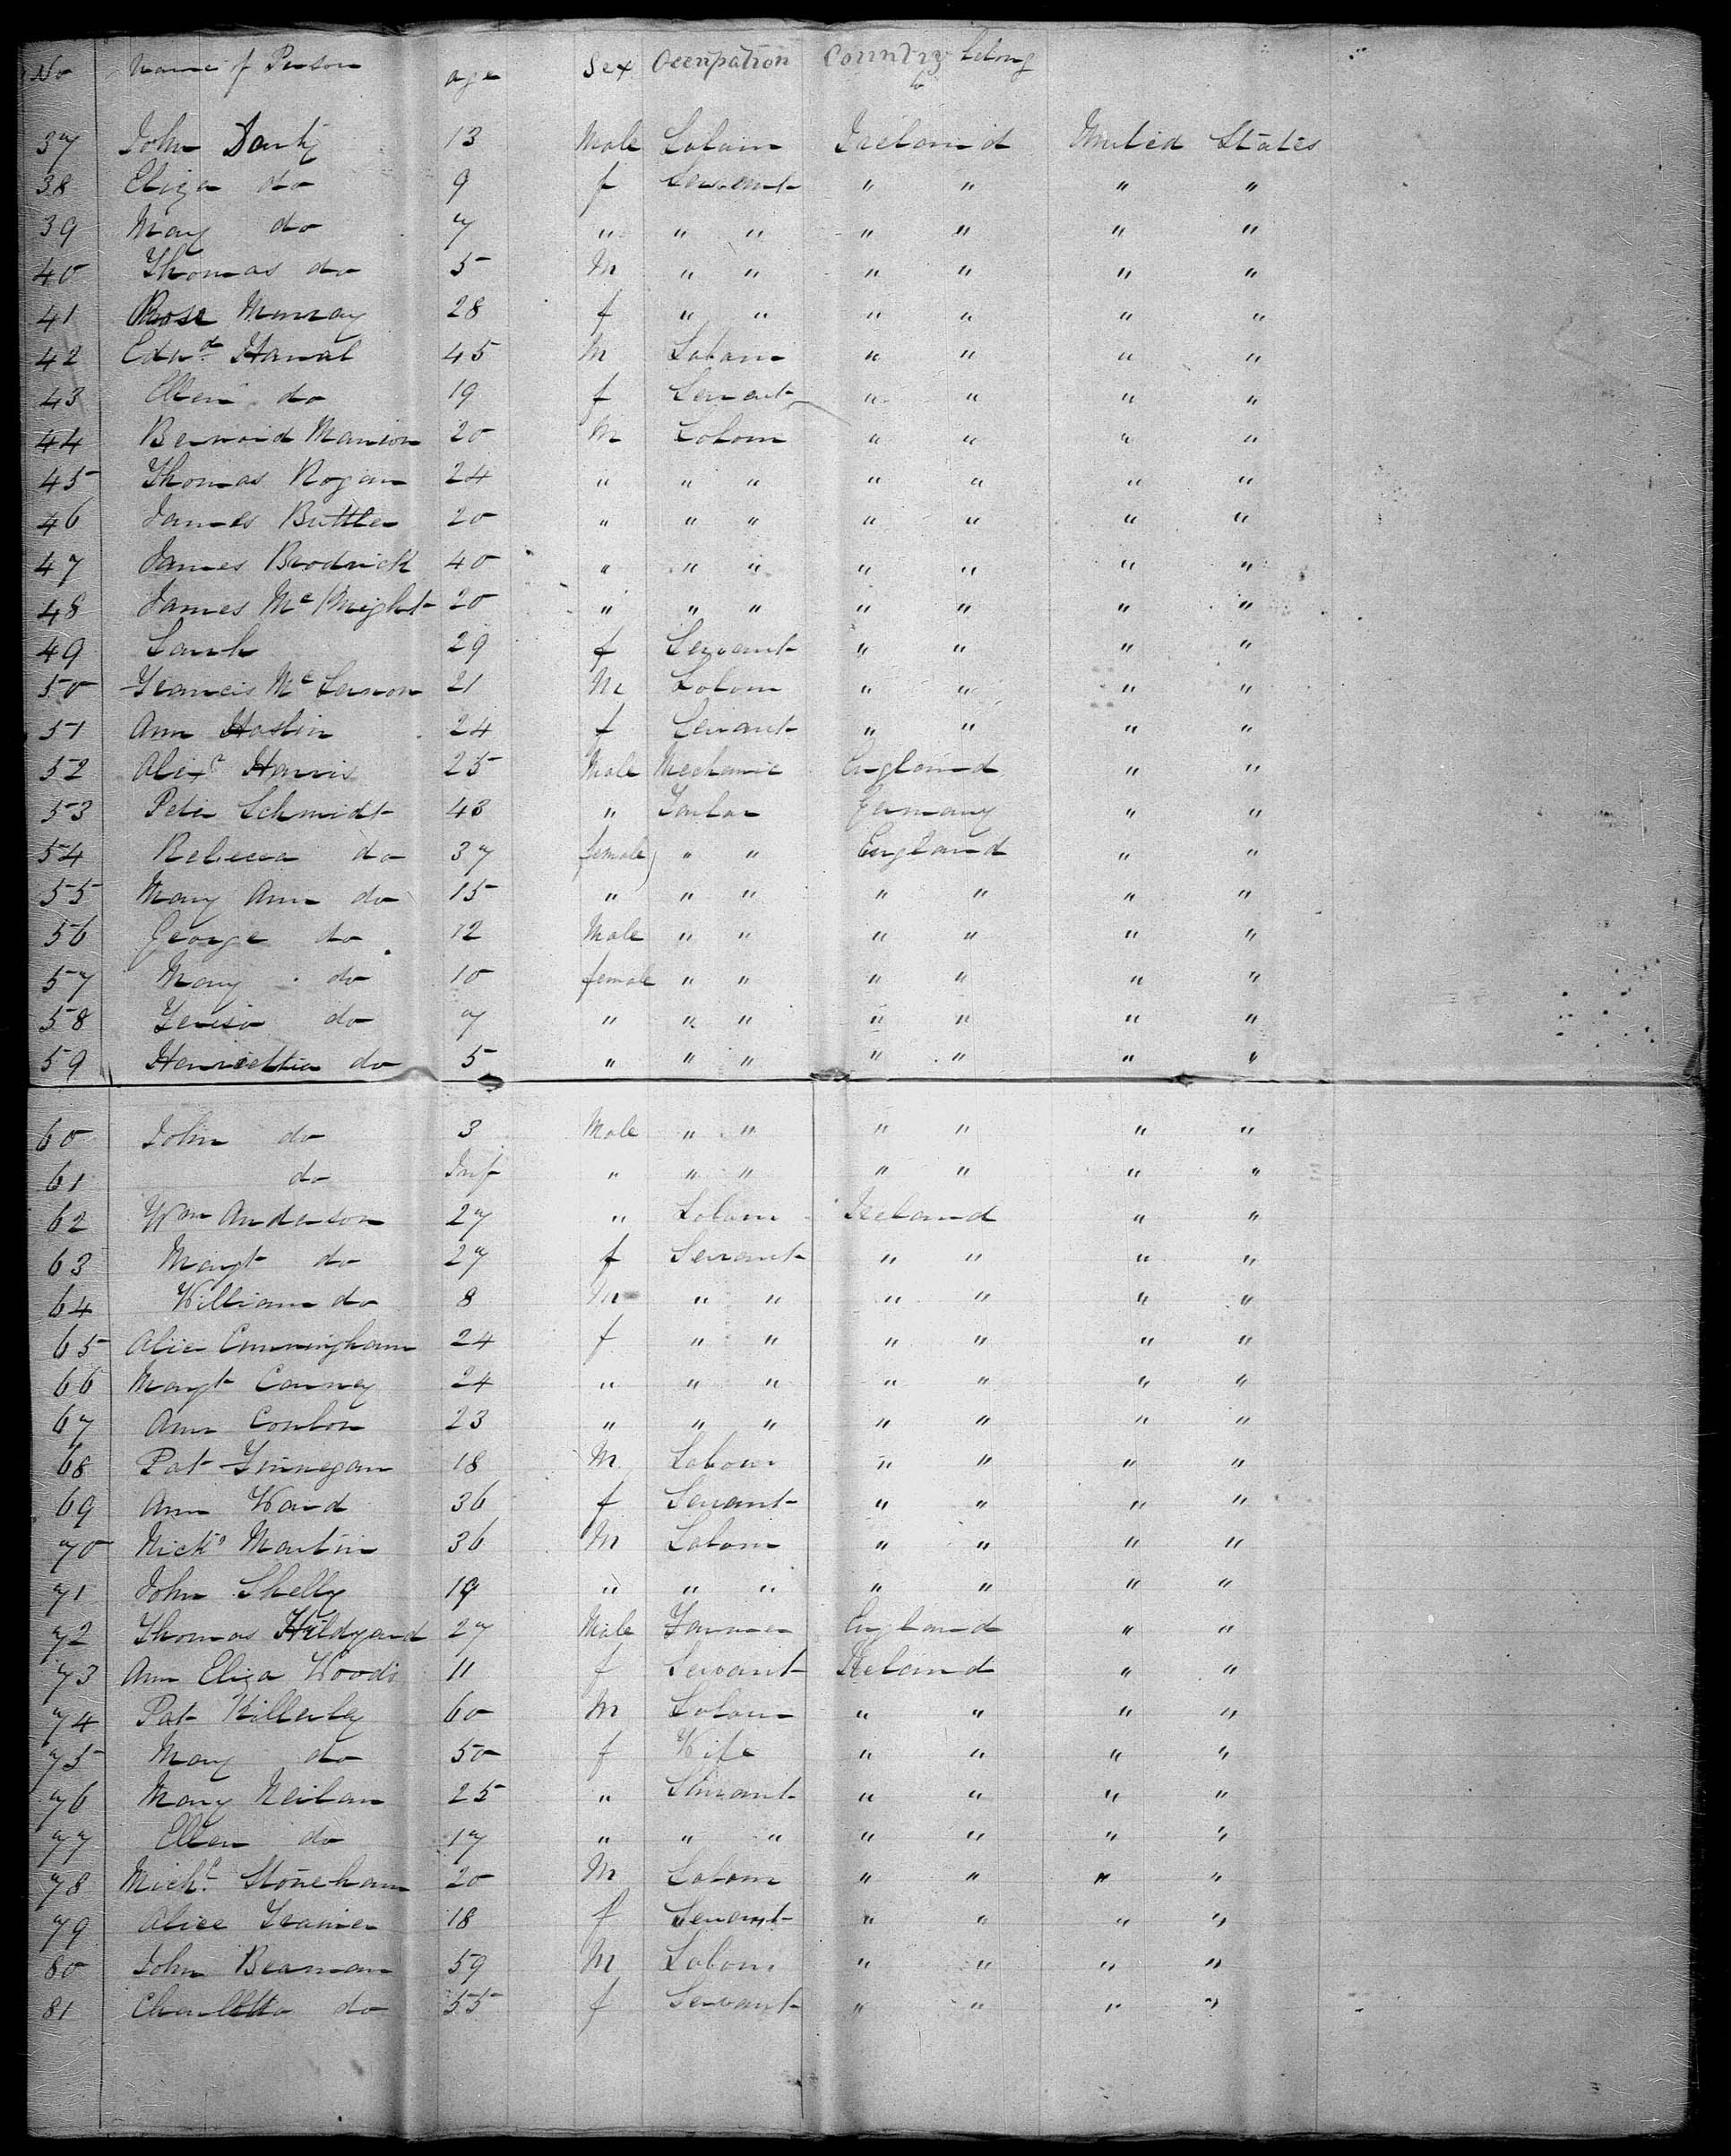 No Name of Person age Sex Occupation Country belong to
37 John 13 Male Labour Ireland United States
38 Eliza do 9 f Servant " " " "
39 Mary do 7 " " " " " " "
40 Thomas do 5 M " " " " " "
41 Rose Murray 28 f " " " " " "
42 Edwd 45 M Labour " " " "
43 Ellen do 19 f Servant " " " "
44 Bernard Manion 20 M Labour " " " "
45 Thomas Rogan 24 " " " " " " "
46 James Buttler 20 " " " " " " "
47 James Brodrick 40 " " " " " " "
48 James McKnight 20 " " " " " " "
49 Sarah 29 f Servant " " " "
50 Francis Mc 21 M Labour " " " "
51 Ann Haslin 24 f Servant " " " "
52 Alexr Harris 25 Male Mechanic England " "
53 Peter Schmidt 43 " Germany " "
54 Rebecca do 37 female " " England " "
55 Mary Ann do 15 " " " " " " "
56 George do 12 Male " " " " " "
57 Mary do 10 female " " " " " "
58 do 7 " " " " " " "
59 Henriettia do 5 " " " " " " "
60 John do 3 Male " " " " " "
61 do Inf " " " " " " "
62 Wm Anderson 27 " Labour Ireland " "
63 Margt do 27 f Servant " " " "
64 William do 8 M " " " " " "
65 Alice Cunningham 24 f " " " " " "
66 Margt Carney 24 " " " " " " "
67 Ann Conlon 23 " " " " " " "
68 Pat Finnegan 18 M Labour " " " "
69 Ann Ward 36 f Servant " " " "
70 Nicks Martin 36 M Labour " " " "
71 John Shelly 19 " " " " " " "
72 Thomas Hildyard 27 Male Farmer England " "
73 Ann Eliza Woods 11 f Servant Ireland " "
74 Pat Killerley 60 M Labour " " " "
75 Mary do 50 f Wife " " " "
76 Mary Neilan 25 " Servant " " " "
77 Ellen do 17 " " " " " " "
78 Michl Stoneham 20 M Labour " " " "
79 Alice 18 f Servant " " " "
80 John Beaman 59 M Labour " " " "
81 Charlotta do 55 f Servant " " " "